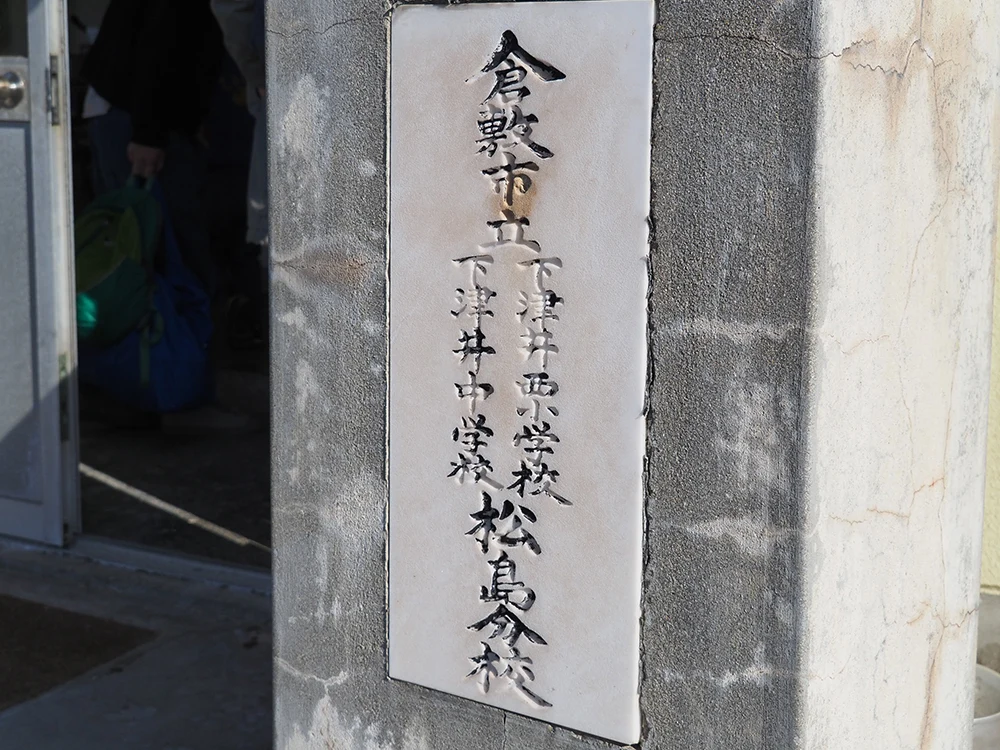 倉敷市立
下津井西小学校
下津井中学校
松島分校